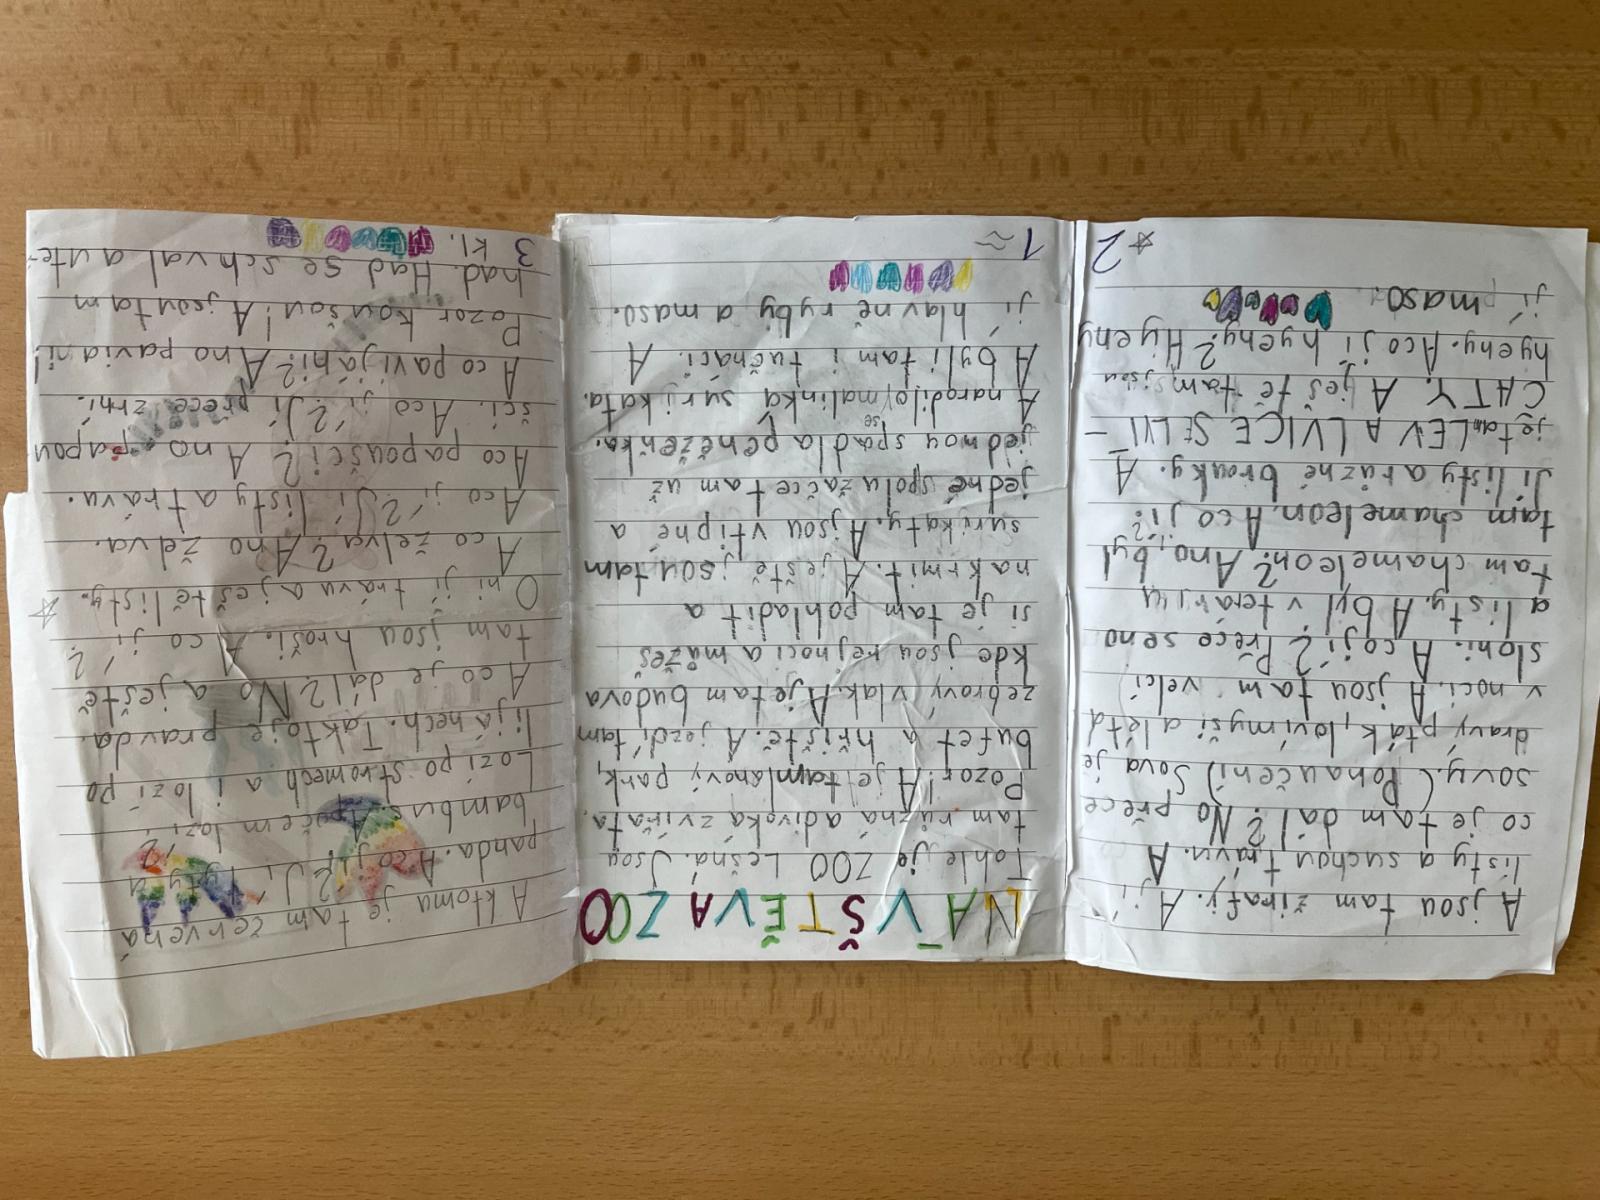 NÁVŠTĚVA ZOO
Tohle je ZOO Lešná. Jsou
tam různá a divoká zvířata.
Pozor! A je tam lanový park,
bufet a hřiště. A jezdí tam
zebrový vlak. A je tam budova
kde jsou rejnoci a mažeš
si je tam pohladit a
nakrmit. A ještě jsou tam
surikaty. A jsou vtipné a
jedné spolužačce tam už
jednou spadla peněženka.
A narodila se malinká surikata.
A byli tam i tučnáci. A
jí hlavně ryby a maso.
1
A jsou tam žirafy. A jí
listy a suchou trávu. A
co je tam dál? No přece
sovy. (Ponaučení) Sova je
dravý pták, loví myši a létá
v noci. A jsou tam velcí
sloni. A co jí? Přece seno
a listy. A byl v teráriu
tam chameleon? Ano, byl
tam chameleon. A co jí?
Jí listy a různé brouky. A
je tam LEV A LVICE S LVÍ-
CATY. A ještě tam jsou
hyeny. A co jí hyeny? Hyeny
jí maso.
2
A ktomu je tam červená
panda. A co jí? Jí lyty a
bambus. A počem lozí?
Lozí po stromech a i lozí po
lijánech. Tak to je pravda.
A co je dál? No a ještě
tam jsou hroši. A co jí?
Oni jí trávu a ještě listy.
A co želva? Ano želva.
A co jí? Jí listy a trávu.
A co papoušci? Ano papou
šci. A co jí? Jí přece zrní.
A co pavijáni? Ano paviáni!
Pozor koušou! A jsou tam
had. Had se schval a ute-
kl.
3